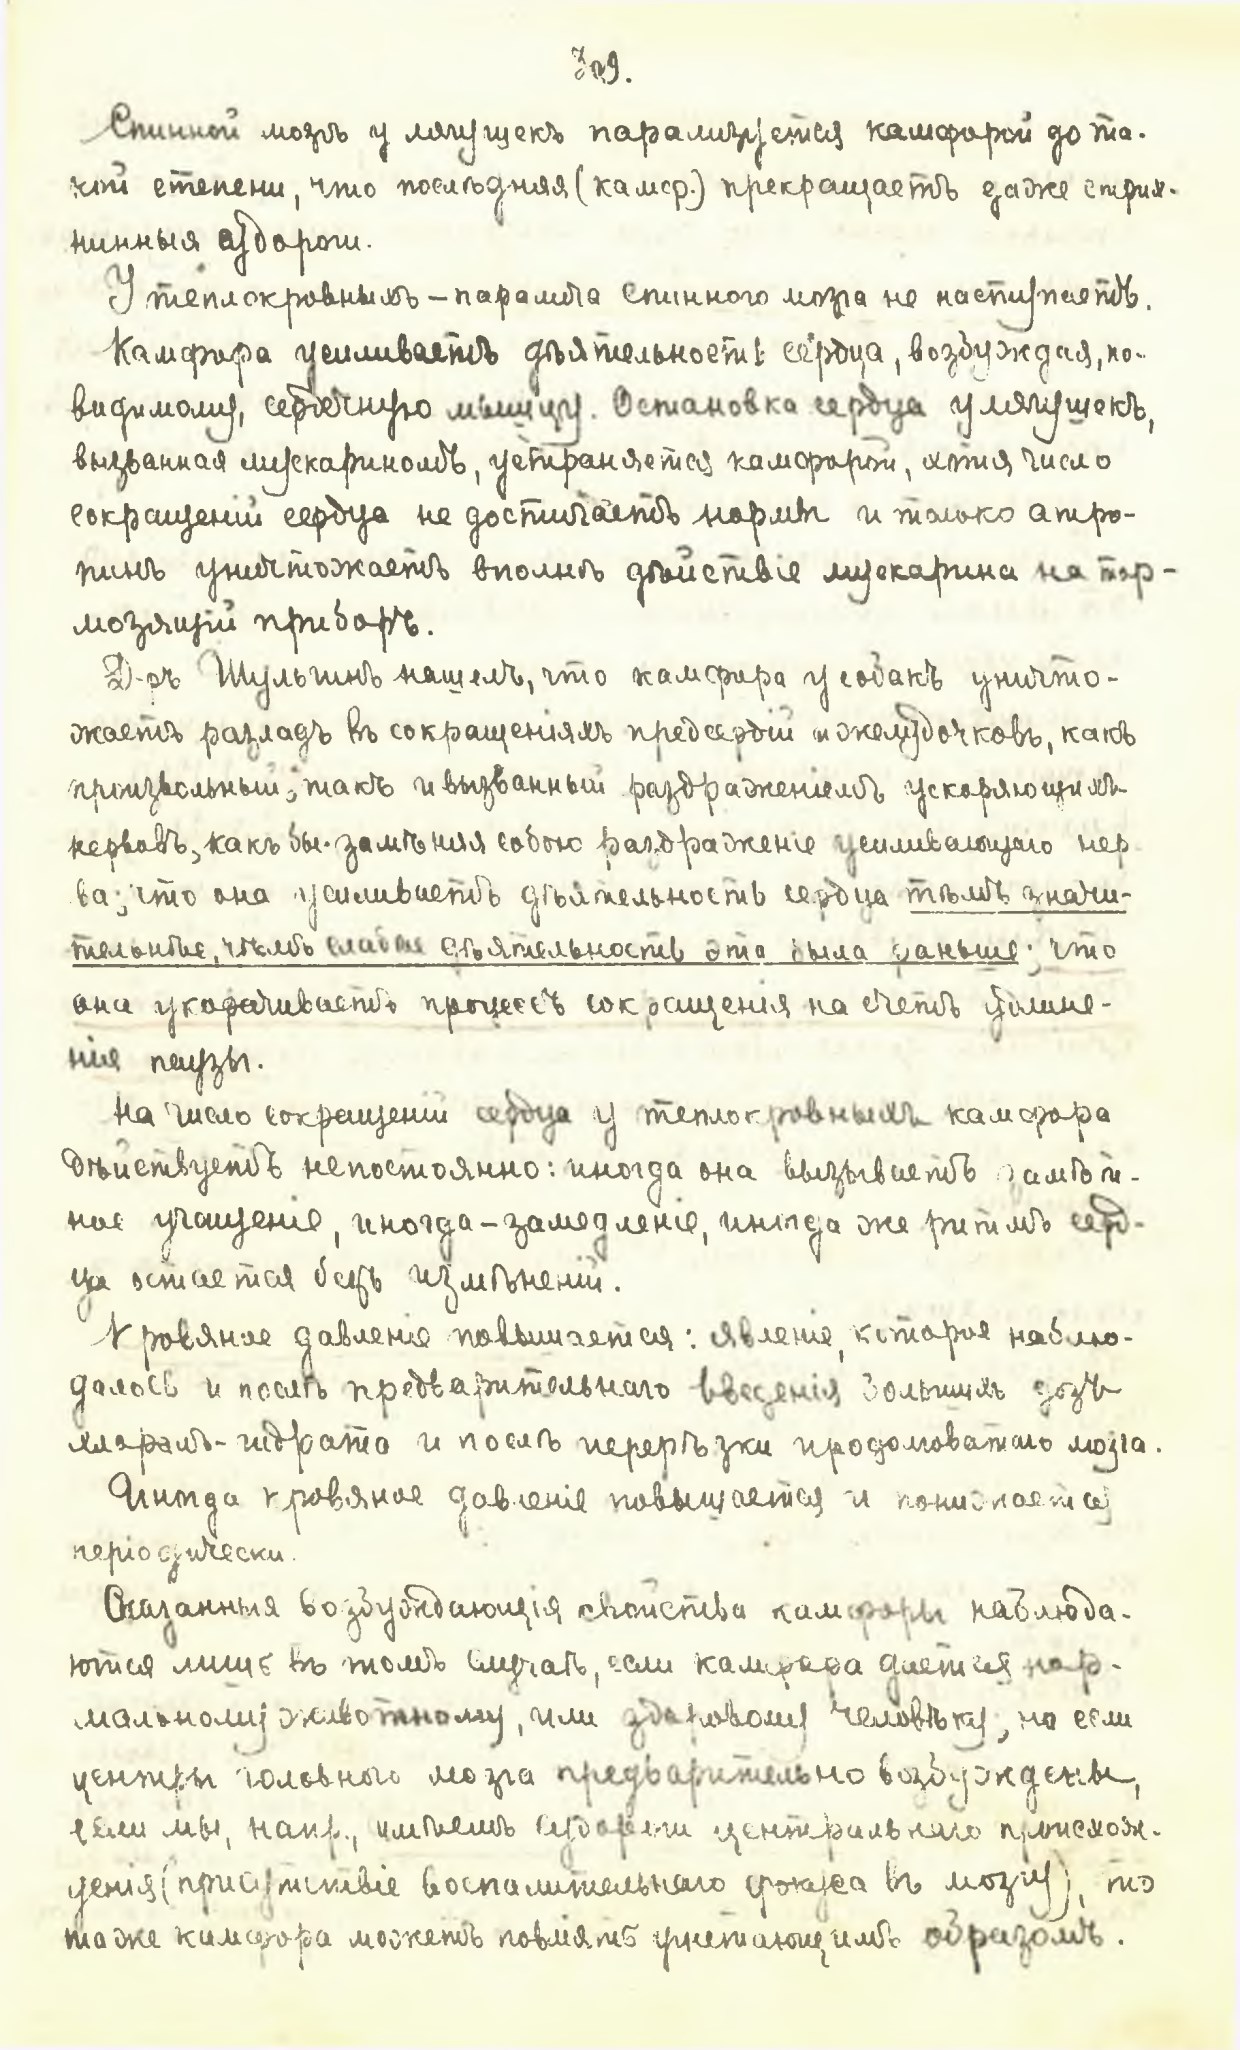 309.
Спинной мозгъ у лягушекъ парализуется камфорой до та-
кой степени, что послѣдняя (камф.) прекращаетъ даже стрих-
нинныя судороги.
У теплокровныхъ – паралича спинного мозга не наступаетъ.
Камфора усиливаетъ дѣятельность сердца, возбуждая, по-
видимому, сердечную мышцу. Остановка сердца у лягушекъ,
вызванная мускариномъ, устраняется камфорой, хотя число
сокращеній сердца не достигаетъ нормы и только атро-
пинъ уничтожаетъ вполнѣ дѣйствіе мускарина на тор-
мозящій приборъ.
Д-ръ Шульгинъ нашелъ, что камфора у собакъ уничто-
жаетъ разладъ въ сокращеніяхъ предсердій и желудочковъ, какъ
произвольный, такъ и вызванный раздраженіемъ ускоряющихъ
нервовъ, какъ бы замѣняя собою раздраженіе усиливающаго нер
ва; что она усиливаетъ дѣятельность сердца тѣмъ значи-
тельнѣе, чѣмъ слабѣе дѣятельность эта была раньше; что
она укорачиваетъ процессъ сокращенія на счетъ удлине-
нія паузы.
На число сокращеній сердца у теплокровныхъ камфора
дѣйствуетъ непостоянно: иногда она вызываетъ замѣт-
ное учащеніе, иногда – замедленіе, иногда же ритмъ серд-
ца остается безъ измѣненій.
Кровяное давленіе повышается: явленіе, которое наблю-
далось и послѣ предварительнаго введенія большихъ дозъ
хлоралъ-гидрата и послѣ перерѣзки продолговатаго мозга.
Иногда кровяное давленіе повышается и понижается
періодически.
Сказанныя возбуждающія свойства камфоры наблюда-
ются лишь въ томъ случаѣ, если камфора дается нор-
мальному животному, или здоровому человѣку, но если
центры головного мозга предварительно возбуждены,
если мы, напр., имѣемъ судороги центральнаго происхож-
денія (присутствіе воспалительнаго фокуса въ мозгу), то
таже камфора можетъ повліять угнетающимъ образомъ.